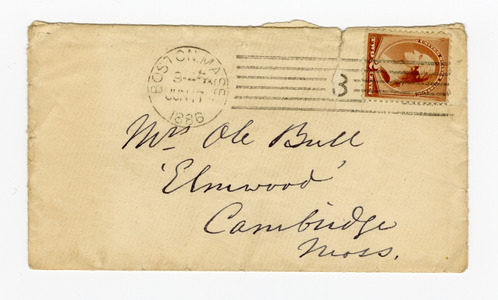 BOSTON, MASS.
JUN 17
1886
3
Mrs Ole Bull
'Elmwood'
Cambridge
Mass.